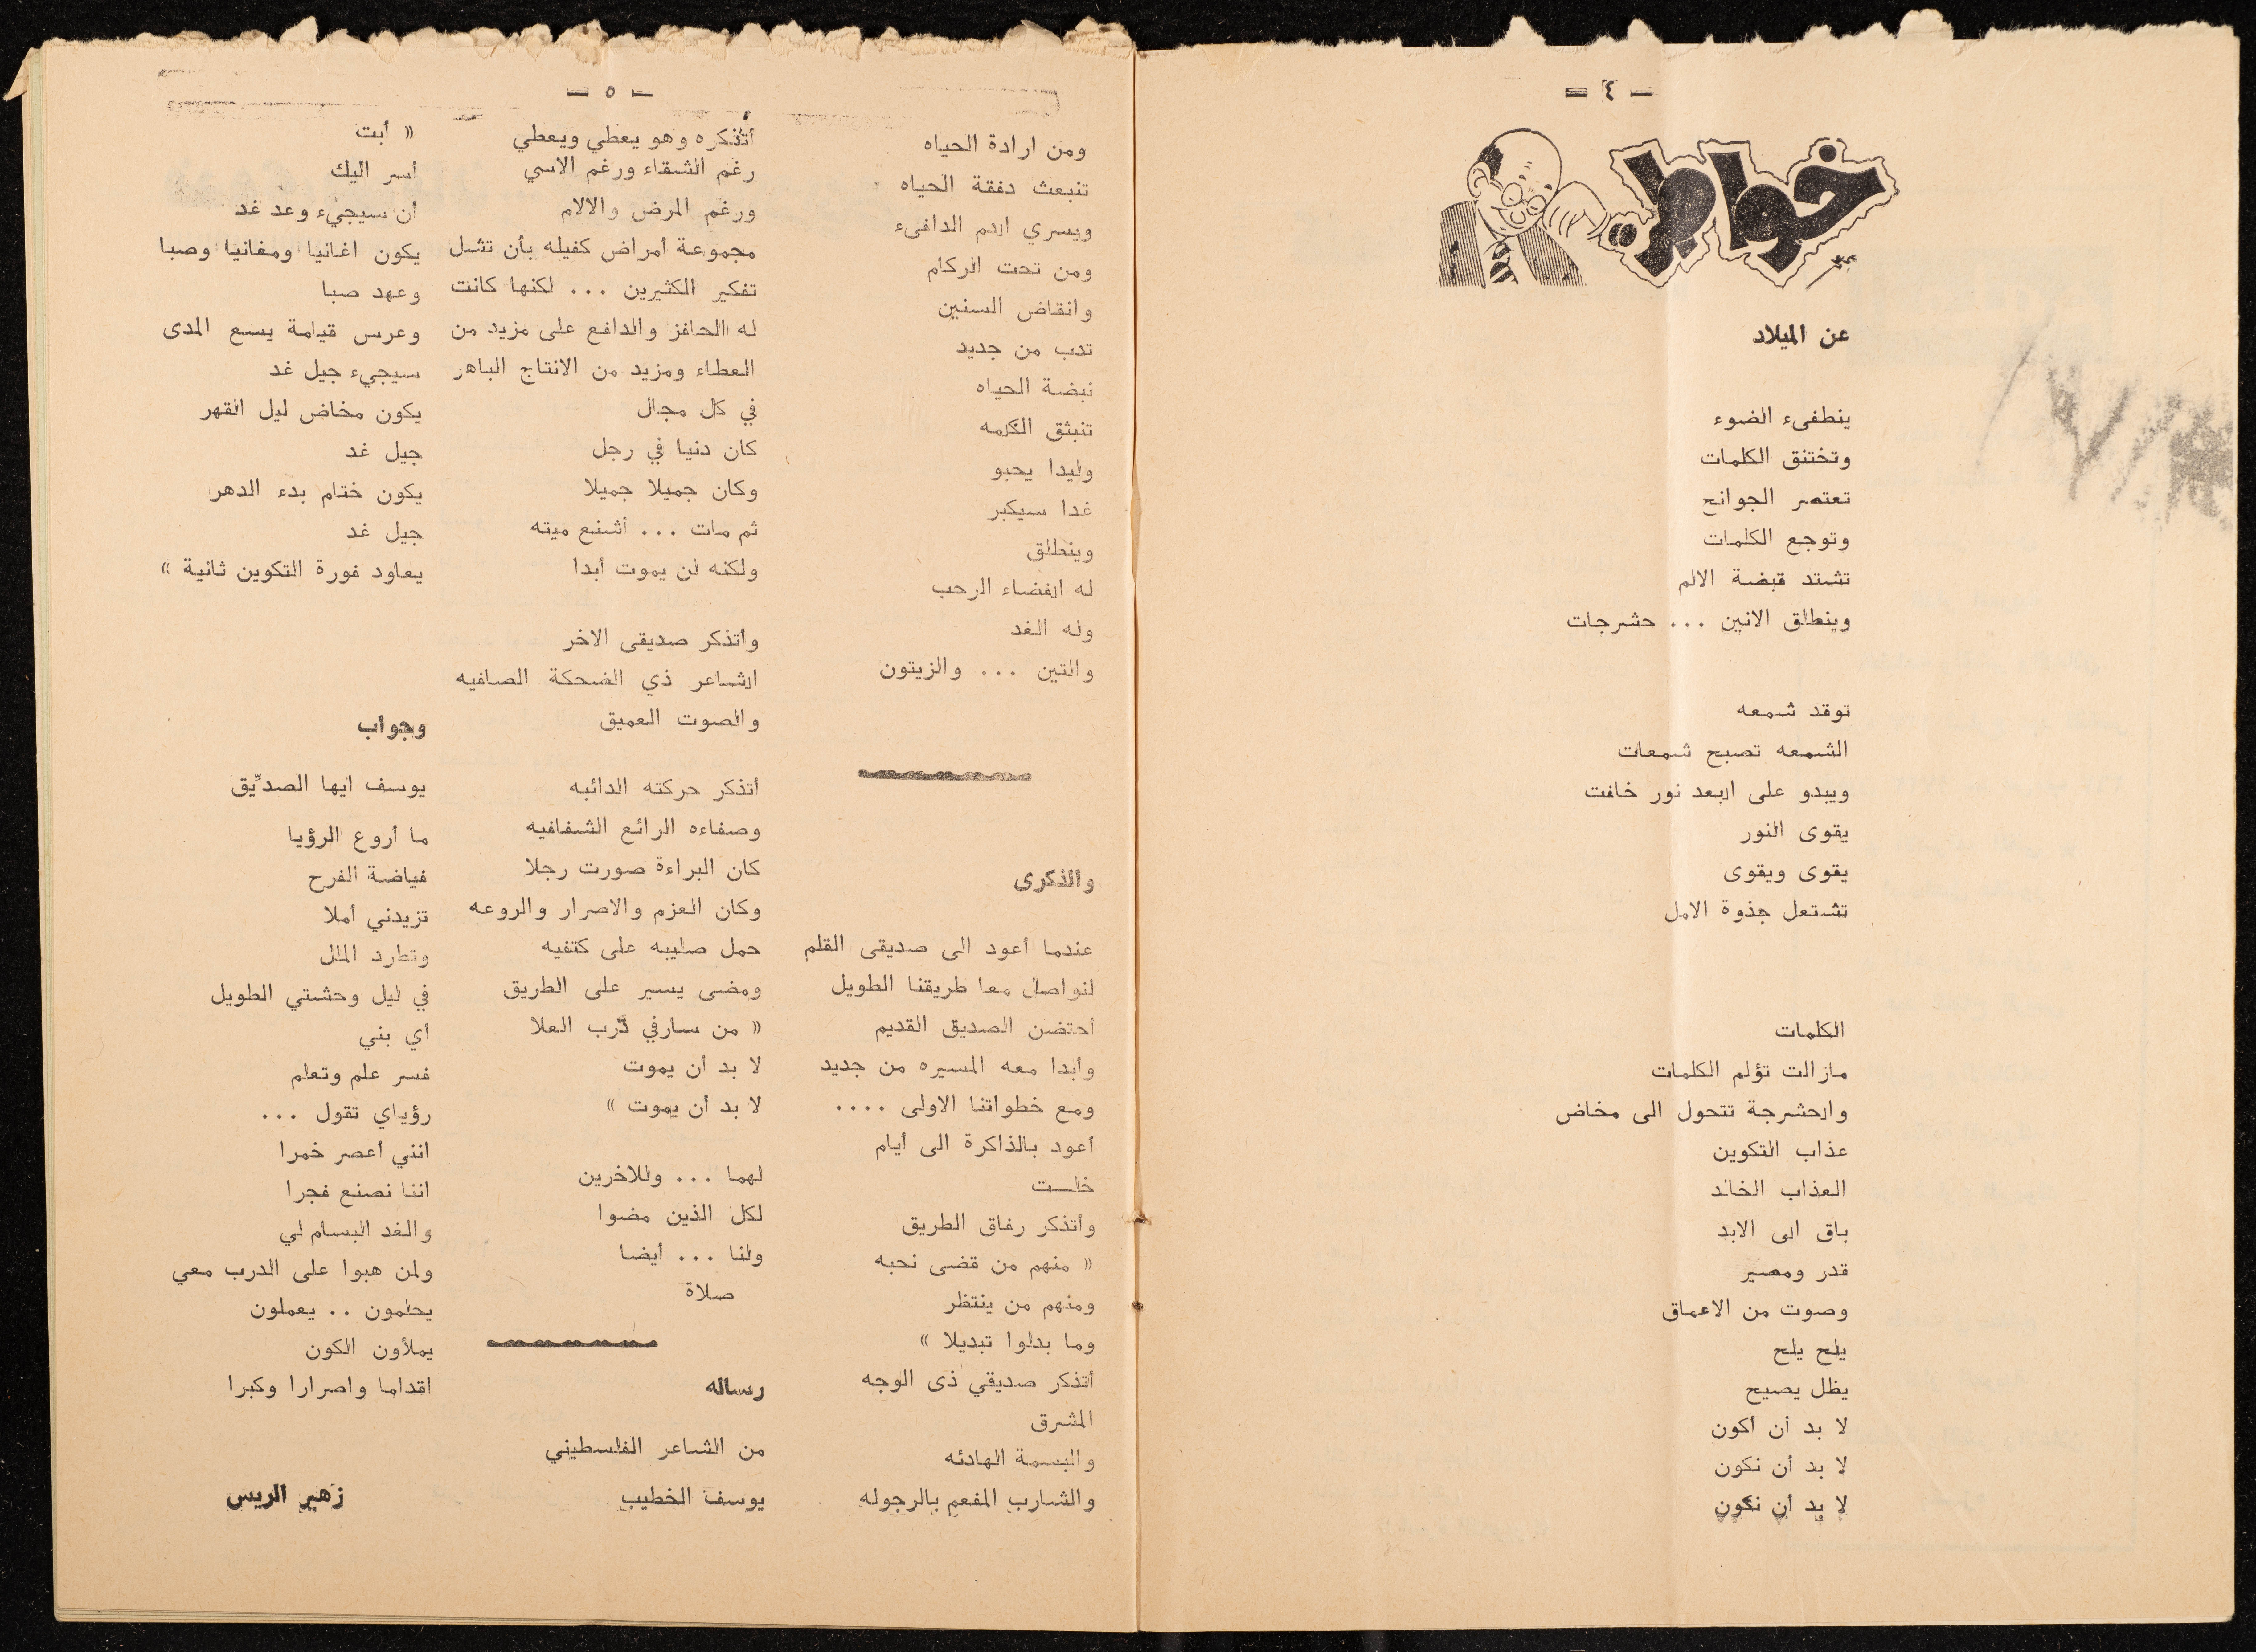 - ٤ -
خواطر
عن الميلاد
ينطفىء الضوء
وتختنق الكلمات
تعتصر الجوانح
وتوجع الكلمات
تشتد قبضة الالم
وينطلق الانين ... حشرجات
توقد شمعه
الشمعه تصبح شمعات
ويبدو على البعد نور خافت
يقوى النور
يقوى ويقوى
تشتعل جذوة الامل
الكلمات
مازالت تؤلم الكلمات
والحشرجة تتحول الى مخاض
عذاب التكوين
العذاب الخالد
باق الى الابد
قدر ومصير
وصوت من الاعماق
يلح يلح
يظل يصيح
لا بد أن أكون
لا بد أن نكون
لا بد أن نكون
- ٥ -
ومن ارادة الحياه
تنبعث دفقة الحياه
ويسري الدم الدافىء
ومن تحت الركام
وانقاض السنين
تدب من جديد
نبضة الحياه
تنبثق الكلمه
وليدا يحبو
غدا سيكبر
وينطلق
له الفضاء الرحب
وله الغد
والتين ... والزيتون
والذكرى
عندما أعود الى صديقى القلم
لنواصل معا طريقنا الطويل
أحتضن الصديق القديم
وأبدا معه المسيره من جديد
ومع خطواتنا الاولى ....
أعود بالذاكرة الى أيام
خلت
وأتذكر رفاق الطريق
« منهم من قضى نحبه
ومنهم من ينتظر
وما بدلوا تبديلا »
أتذكر صديقي ذى الوجه
المشرق
والبسمة الهادئه
والشارب المفعم بالرجوله
أتذكره وهو يعطي ويعطي
رغم الشقاء ورغم الاسي
ورغم المرض والالام
مجموعة أمراض كفيله بأن تشل
تفكير الكثيرين ... لكنها كانت
له الحافز والدافع على مزيد من
العطاء ومزيد من الانتاج الباهر
في كل مجال
كان دنيا في رجل
وكان جميلا جميلا
ثم مات ... أشنع ميته
ولكنه لن يموت أبدا
وأتذكر صديقى الاخر
الشاعر ذي الضحكة الصافيه
والصوت العميق
أتذكر حركته الدائبه
وصفاءه الرائع الشفافيه
كان البراءة صورت رجلا
وكان العزم والاصرار والروعه
حمل صليبه على كتفيه
ومضى يسير على الطريق
« من سار في درب العلا
لا بد أن يموت
لا بد أن يموت »
لهما ... وللاخرين
لكل الذين مضوا
ولنا ... أيضا
صلاة
رساله
من الشاعر الفلسطيني
يوسف الخطيب
« أبت
أسر اليك
أن سيجيء وعد غد
يكون اغانيا ومغانيا وصبا
وعهد صبا
وعرس قيامة يسع المدى
سيجيء جيل غد
يكون مخاض ليل القهر
جيل غد
يكون ختام بدء الدهر
جيل غد
يعاود فورة التكوين ثانية »
وجواب
يوسف ايها الصدّيق
ما أروع الرؤيا
فياضة الفرح
تزيدني أملا
وتطرد الملل
في ليل وحشتي الطويل
أي بني
فسر علم وتعلم
رؤياي تقول ...
انني أعصر خمرا
اننا نصنع فجرا
والغد البسام لي
ولمن هبوا على الدرب معي
يحلمون .. يعملون
يملأون الكون
اقداما واصرارا وكبرا
زهير الريس